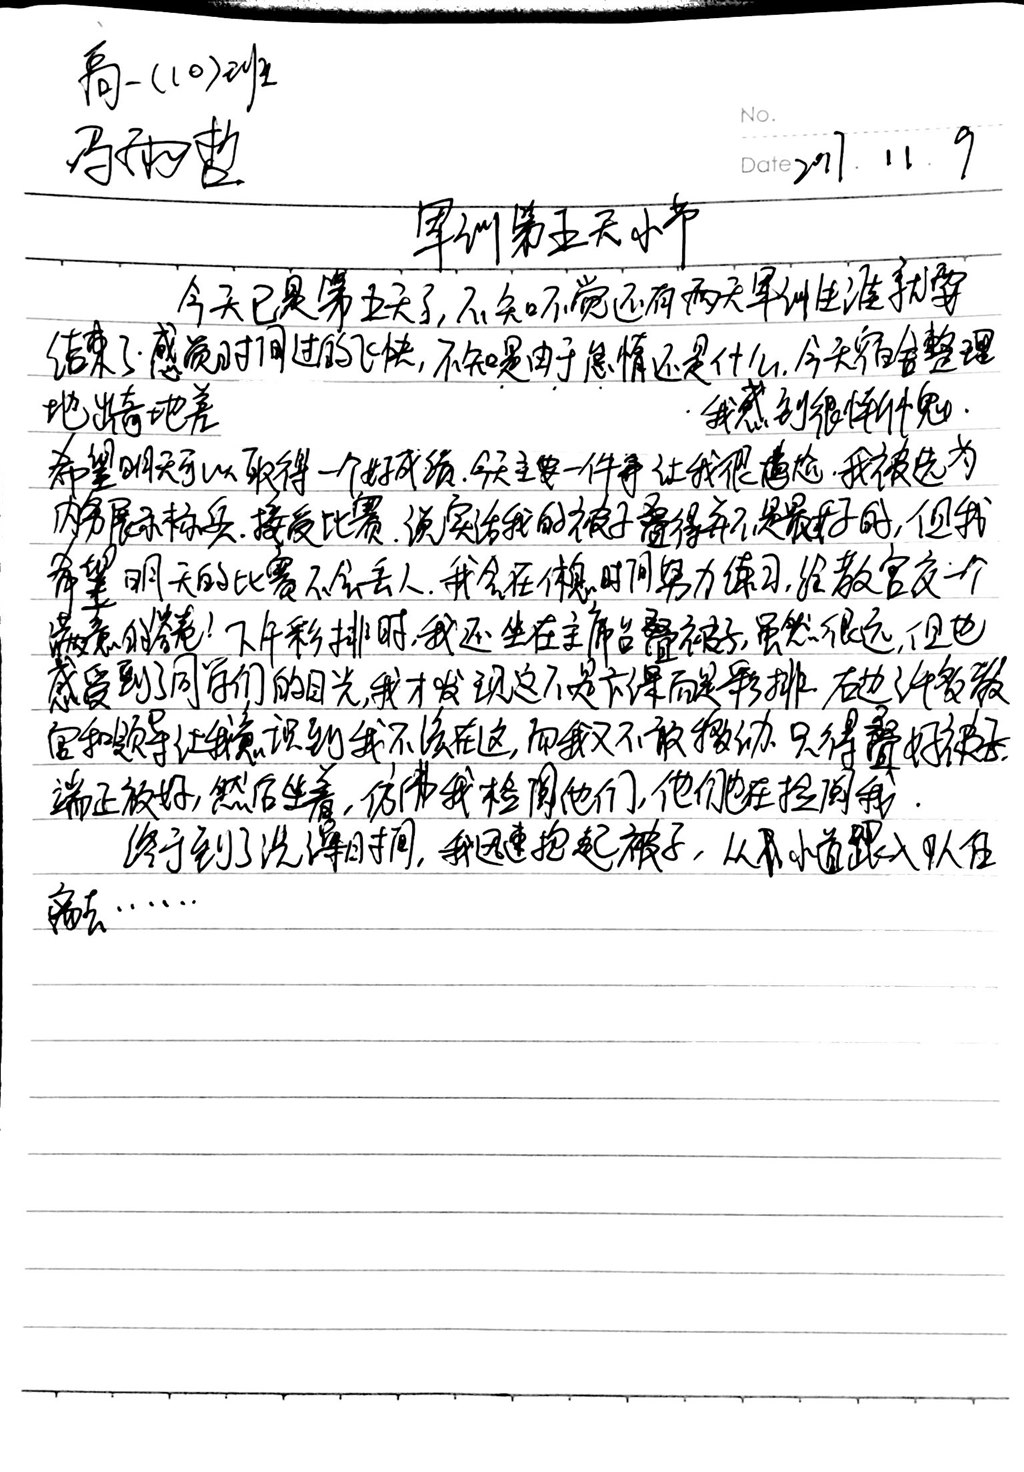 高一（10）班
冯雨哲
No.
Date 2017.11.9
军训第五天小节
今天已是第五天了，不知不觉还有两天军训生涯就要
结束了.感觉时间过的飞快，不知是由于怠惰还是什么，今天宿舍整理
地出奇地差 我感到很惭愧.
希望明天可以取得一个好成绩.今天主要一件事让我很尴尬.我被选为
内务展示标兵.接受比赛.说实话我的被子叠得并不是最好的，但我
希望明天的比赛不会丢人.我会在休息时间努力练习，给教官交一个
满意的答卷！下午彩排时，我还坐在主席台叠被子，虽然很远，但也
感受到了同学们的目光，我才发现这不是六课而是彩排.右边许多教
官和领导让我意识到我不该在这，而我又不敢挪动.只得叠好被子，
端正放好，然后坐着，仿佛我检阅他们，他们也在检阅我.
终于到了洗澡时间，我迅速抱起被子，从小道跟入队伍
离去……